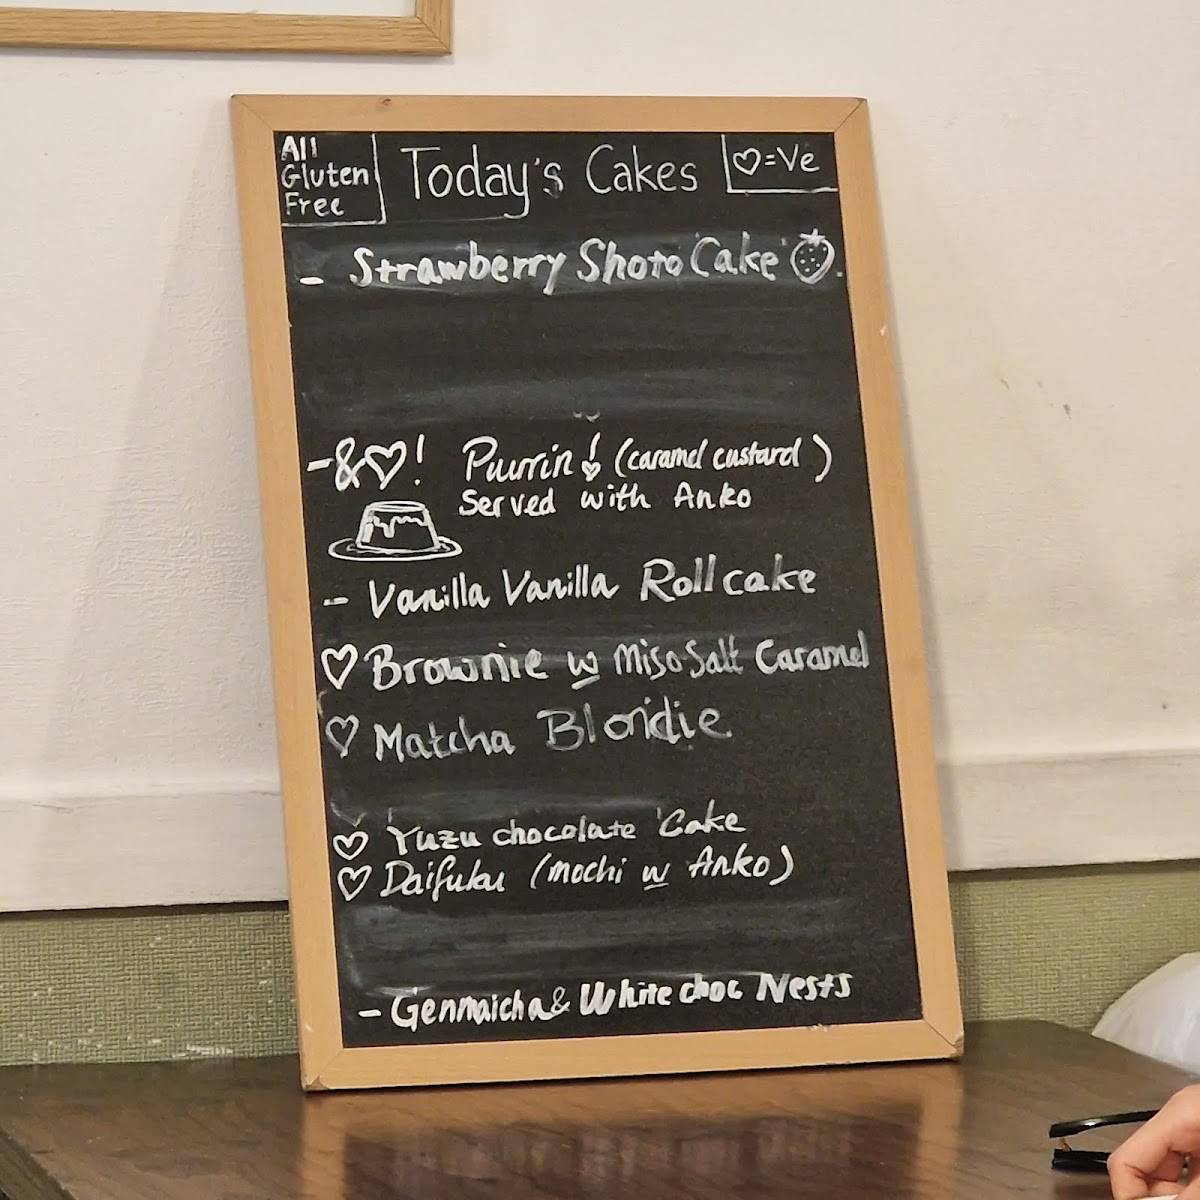 All
Gluten
Free
Today's Cakes
♡=Ve
- Strawberry Shoto 'Cake'
-&♡! Puurrin! (caramel custard)
Served with Anko
- Vanilla Vanilla Roll cake
♡ Brownie w Miso Salt Caramel
♡ Matcha Blondie
♡ Yuzu chocolate 'Cake
♡ Daifuku (mochi w Anko)
- Genmaicha & White choc Nests